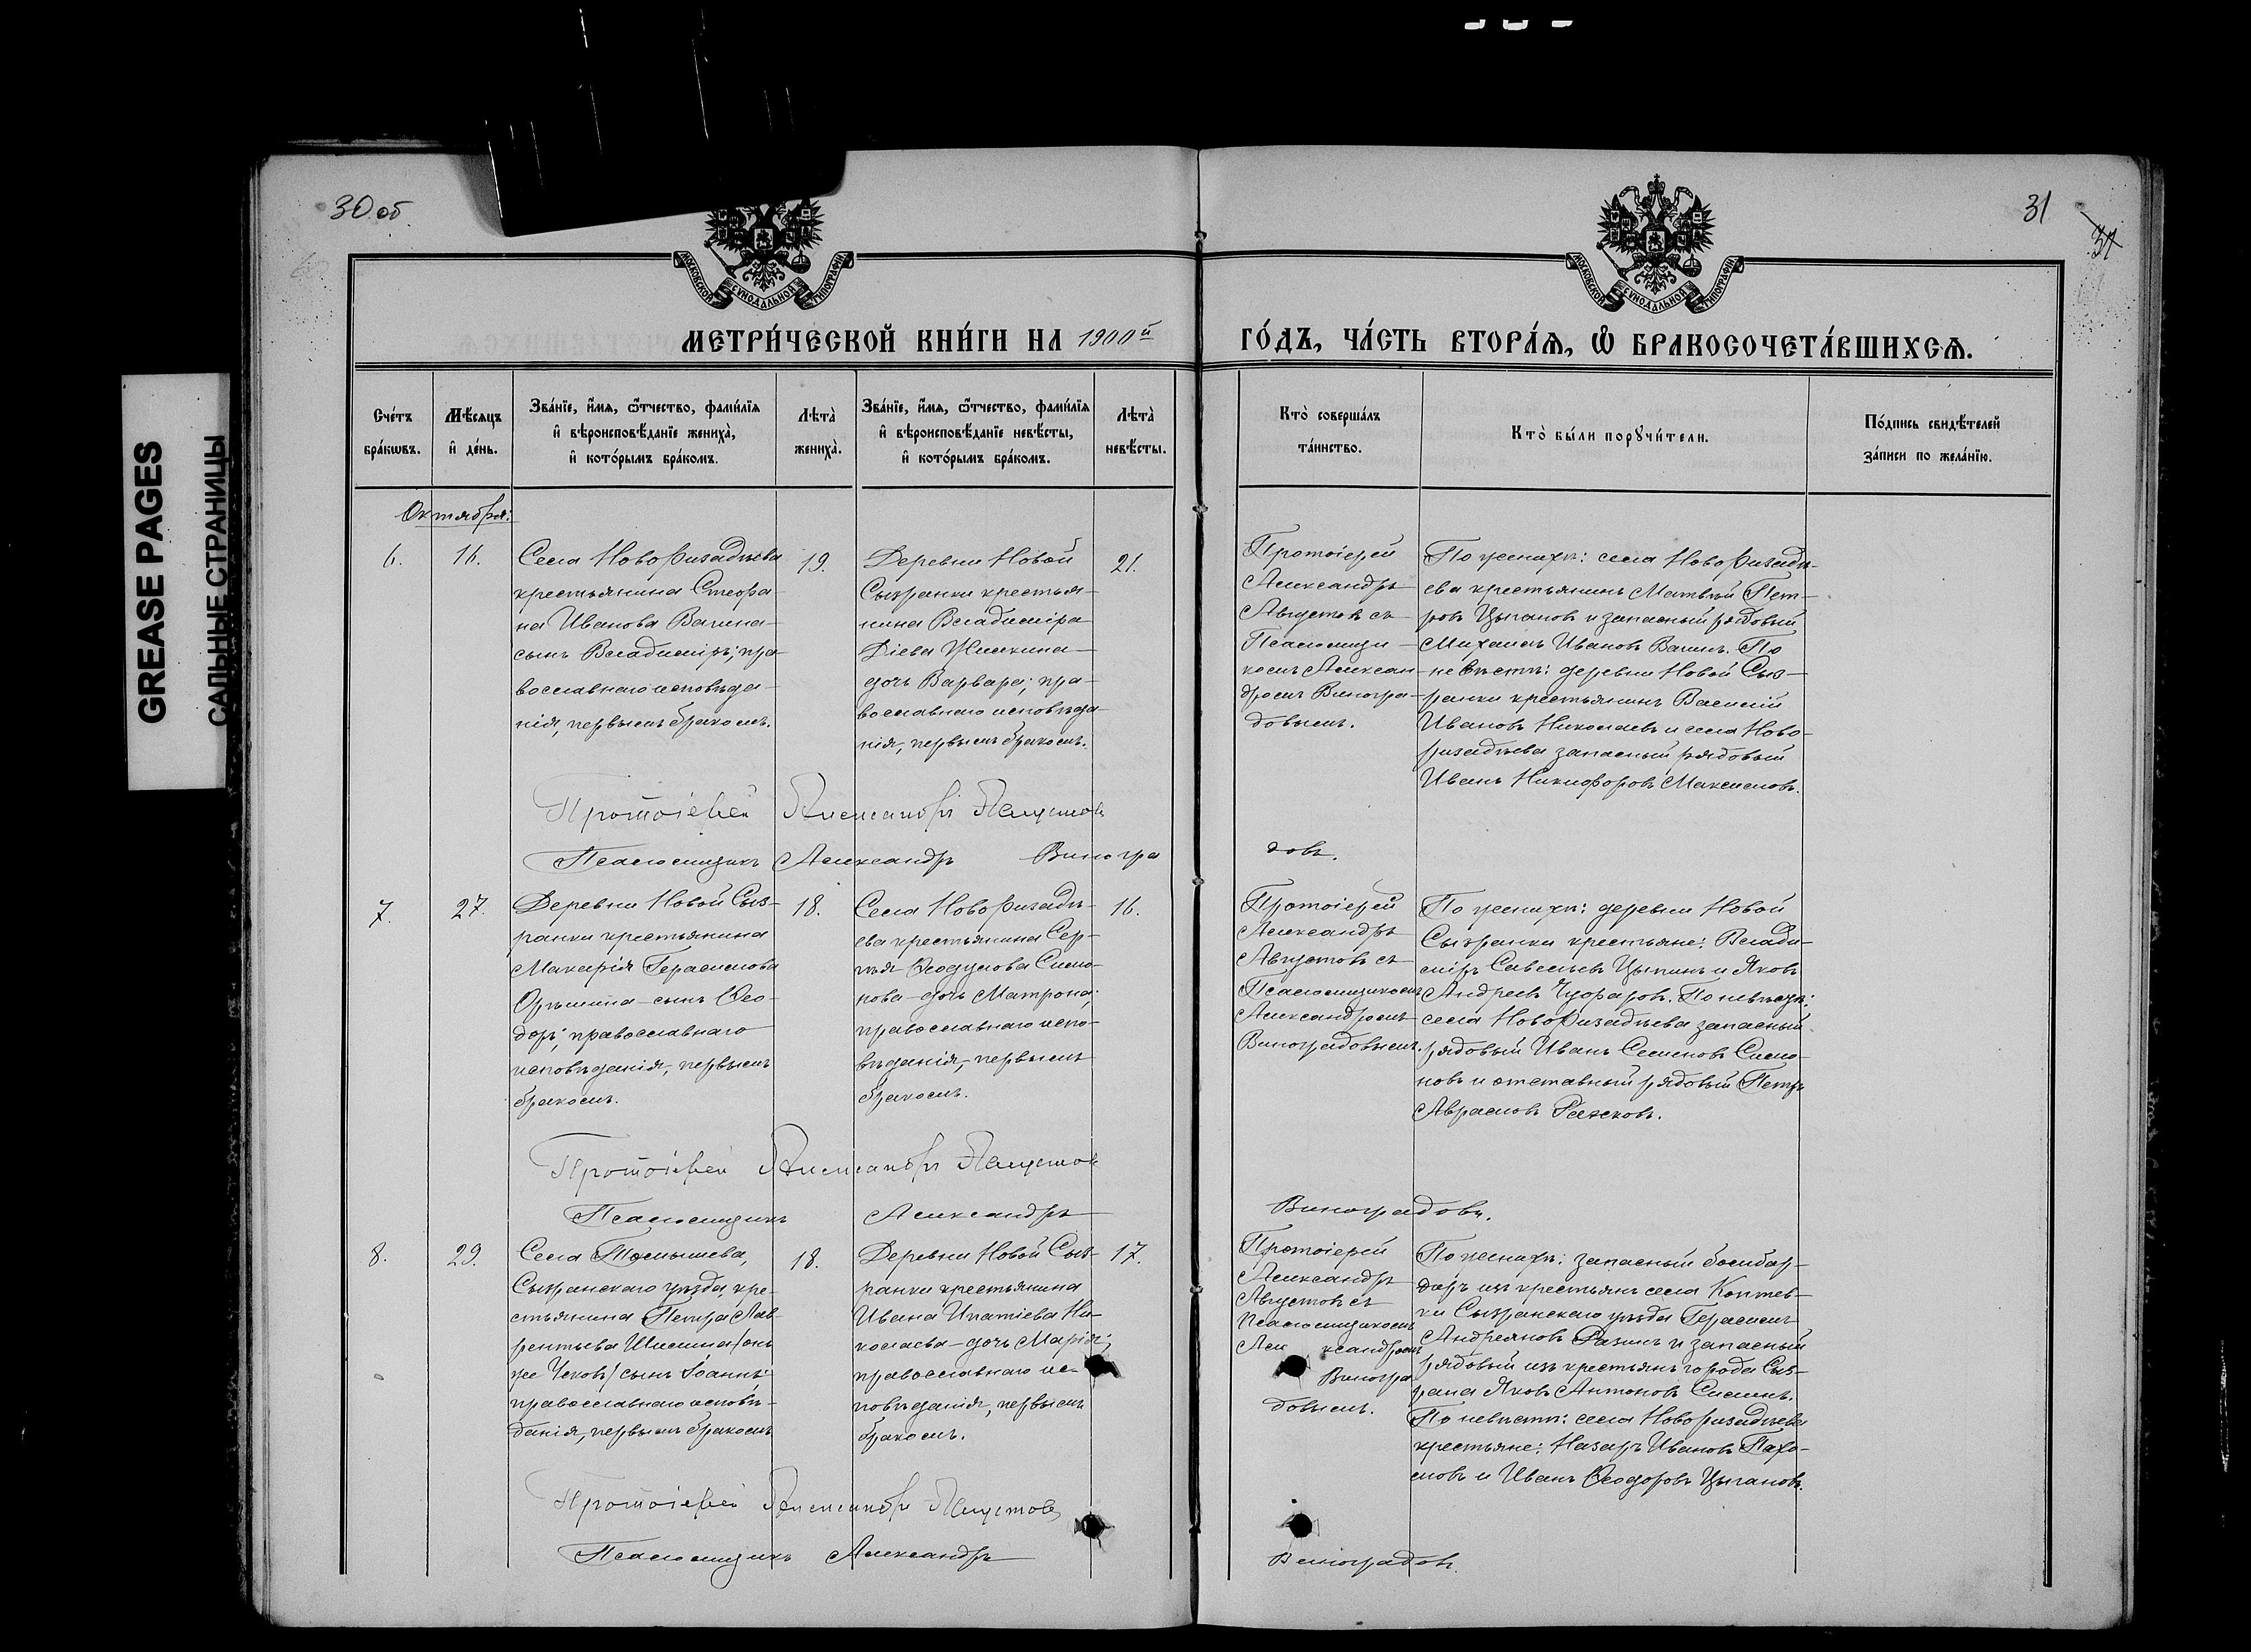 GREASE PAGES
САЛЬНЫЕ СТРАНИЦЫ
30 об
31
31
МОСКОВСКОЙ СУНОДАЛЬНОЙ ТИПОГРАФІИ
МОСКОВСКОЙ СУНОДАЛЬНОЙ ТИПОГРАФІИ
МЕТРИ́ЧЕСКОЙ КНИ́ГИ НА 1900й
ГО́ДЪ, ЧА́СТЬ ВТОРА́Ѧ, Ѽ БРАКОСОЧЕТА́ВШИХСѦ.
Сче́тъ
бра́кѡвъ.
Мѣ́сяцъ
и҆ де́нь.
Зва́нїе, и҆́мѧ, ѻ҆́тчество, фами́лїѧ
и҆ вѣроисповѣ́данїе жениха̀,
и҆ кото́рымъ бра́комъ.
Лѣта̀
жениха̀.
Зва́нїе, и҆́мѧ, ѻ҆́тчество, фами́лїѧ
и҆ вѣроисповѣ́данїе невѣ́сты,
и҆ кото́рымъ бра́комъ.
Лѣта̀
невѣ́сты.
Кто̀ соверша́лъ
та́инство.
Кто̀ бы́ли порꙋчи́тели.
По́дпись свидѣ́телей
за́писи по жела́нїю.
Октября:
6.
16.
Села Новоризадѣева
крестьянина Стефа-
на Иванова Вагина-
сынъ Владиміръ; пра-
вославнаго исповѣда-
нія, первымъ бракомъ.
19.
Деревни Новой
Сызранки крестья-
нина Владиміра
Діева Жилкина-
дочь Варвара; пра-
вославнаго исповѣда-
нія, первымъ бракомъ.
21.
Протоіерей
Александръ
Августовъ съ
Псаломщи-
комъ Алексан-
дромъ Виногра-
довымъ.
По женихѣ: села Новоризадѣ-
ева крестьянинъ Матвѣй Пет-
ровъ Цыгановъ и запасный рядовый
Михаилъ Ивановъ Вагинъ. По
невѣстѣ: деревни Новой Сыз-
ранки крестьянинъ Василій
Ивановъ Николаевъ и села Ново-
ризадѣева запасный рядовый
Иванъ Никифоровъ Максимовъ.
Протоіерей Александръ Августовъ
Псаломщикъ Александръ Виногра
довъ.
7.
27.
Деревни Новой Сыз-
ранки крестьянина
Макарія Герасимова
Орѣшина-сынъ Ѳео-
доръ; православнаго
исповѣданія, первымъ
бракомъ.
18.
Села Новоризадѣ-
ева крестьянина Сер-
гѣя Ѳеодулова Симо-
нова-дочь Матрона;
православнаго испо-
вѣданія, первымъ
бракомъ.
16.
Протоіерей
Александръ
Августовъ съ
Псаломщикомъ
Александромъ
Виноградовымъ.
По женихѣ: деревни Новой
Сызранки крестьяне: Влади-
міръ Савельевъ Цыпинъ и Яковъ
Андреевъ Чуфаровъ. По невѣстѣ:
села Новоризадѣева запасный
рядовый Иванъ Семеновъ Симо-
новъ и отставный рядовый Петръ
Аврамовъ
Протоіерей Александръ Августовъ
Псаломщикъ Александръ
Виноградовъ.
8.
29.
Села Томышева,
Сызранскаго уѣзда, кре-
стьянина Петра Лав-
рентьева Шишина (онъ
же Чековъ) сынъ Іоаннъ;
православнаго исповѣ-
данія, первымъ бракомъ
18.
Деревни Новой Сыз-
ранки крестьянина
Ивана Ипатіева Ни-
колаева-дочь Марія;
православнаго ис-
повѣданія, первымъ
бракомъ.
17.
Протоіерей
Александръ
Августовъ съ
Псаломщикомъ
Александромъ
Виногра
довымъ.
По женихѣ: запасный бомбар-
диръ изъ крестьянъ села Коптев-
ки Сызранскаго уѣзда Герасимъ
Андреяновъ Разинъ и запасный
рядовый изъ крестьянъ города Сыз-
рана Яковъ Антоновъ
По невѣстѣ: села Новоризадѣева
крестьяне: Назаръ Ивановъ Пахо-
мовъ и Иванъ Ѳеодоровъ Цыгановъ.
Протоіерей Александръ Августовъ
Псаломщикъ Александръ
Виноградовъ.